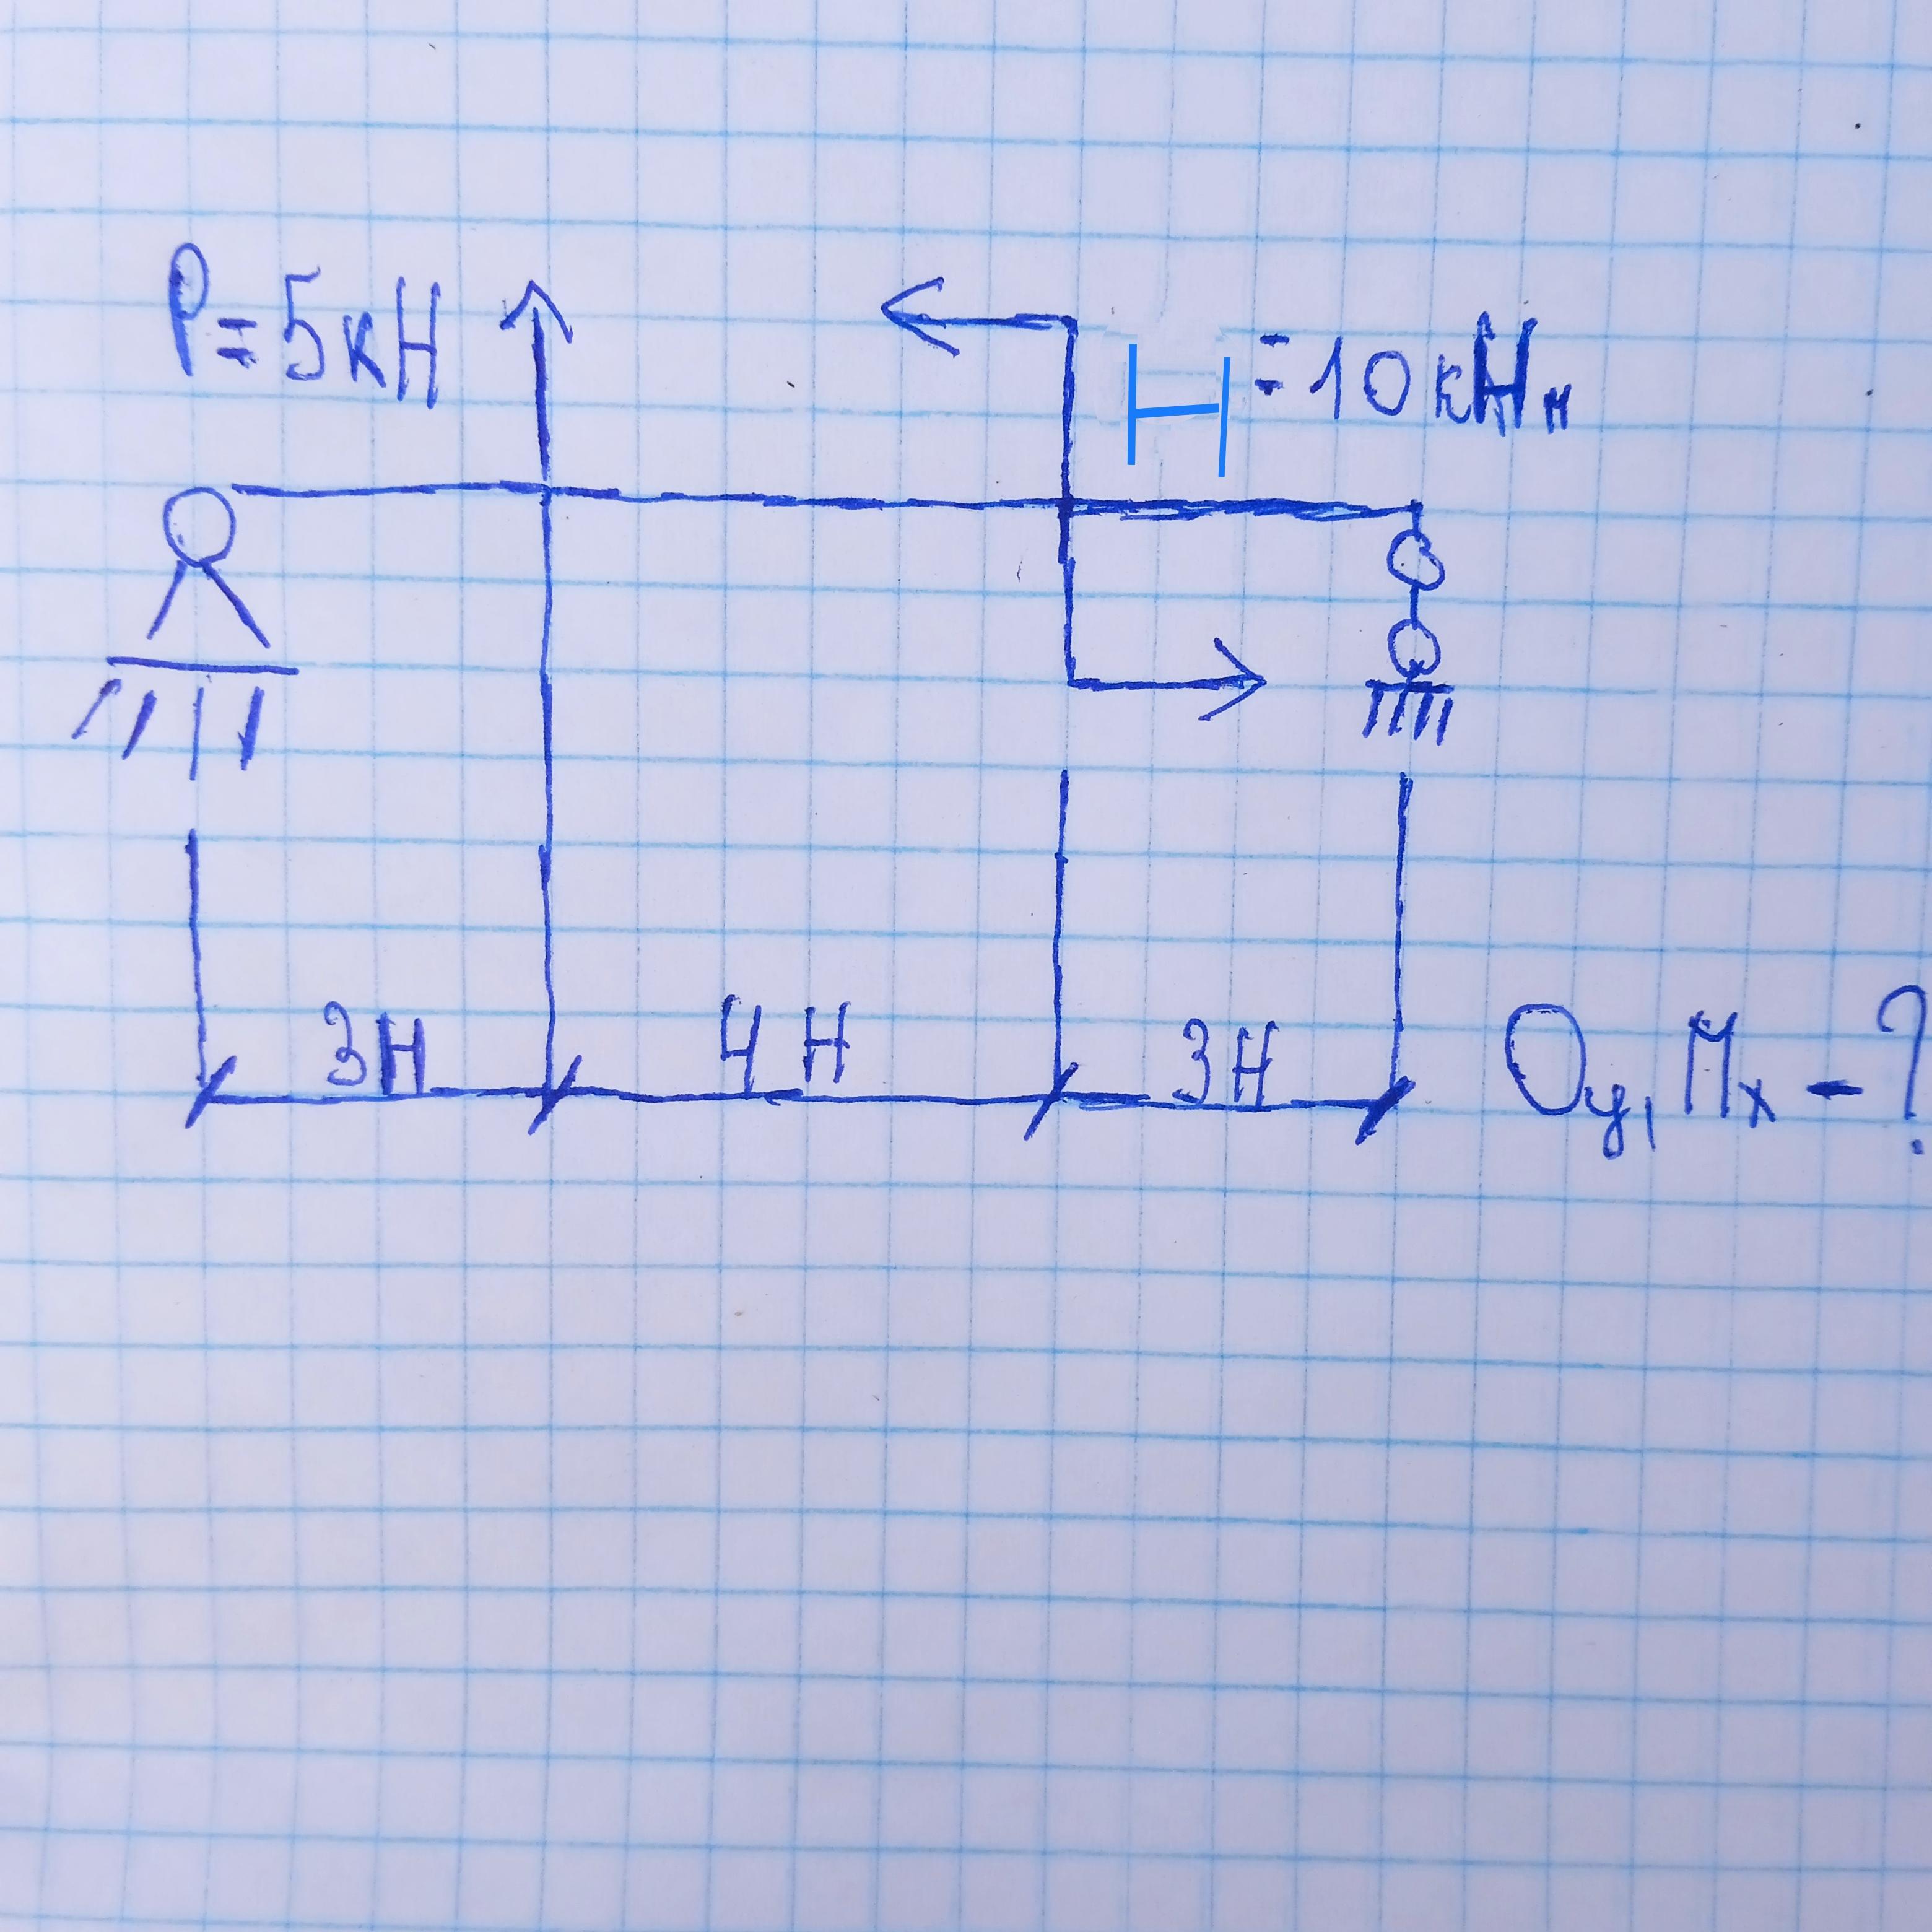 P = 5кН
H = 10кНм
3Н 4Н 3Н Oy, Mx - ?